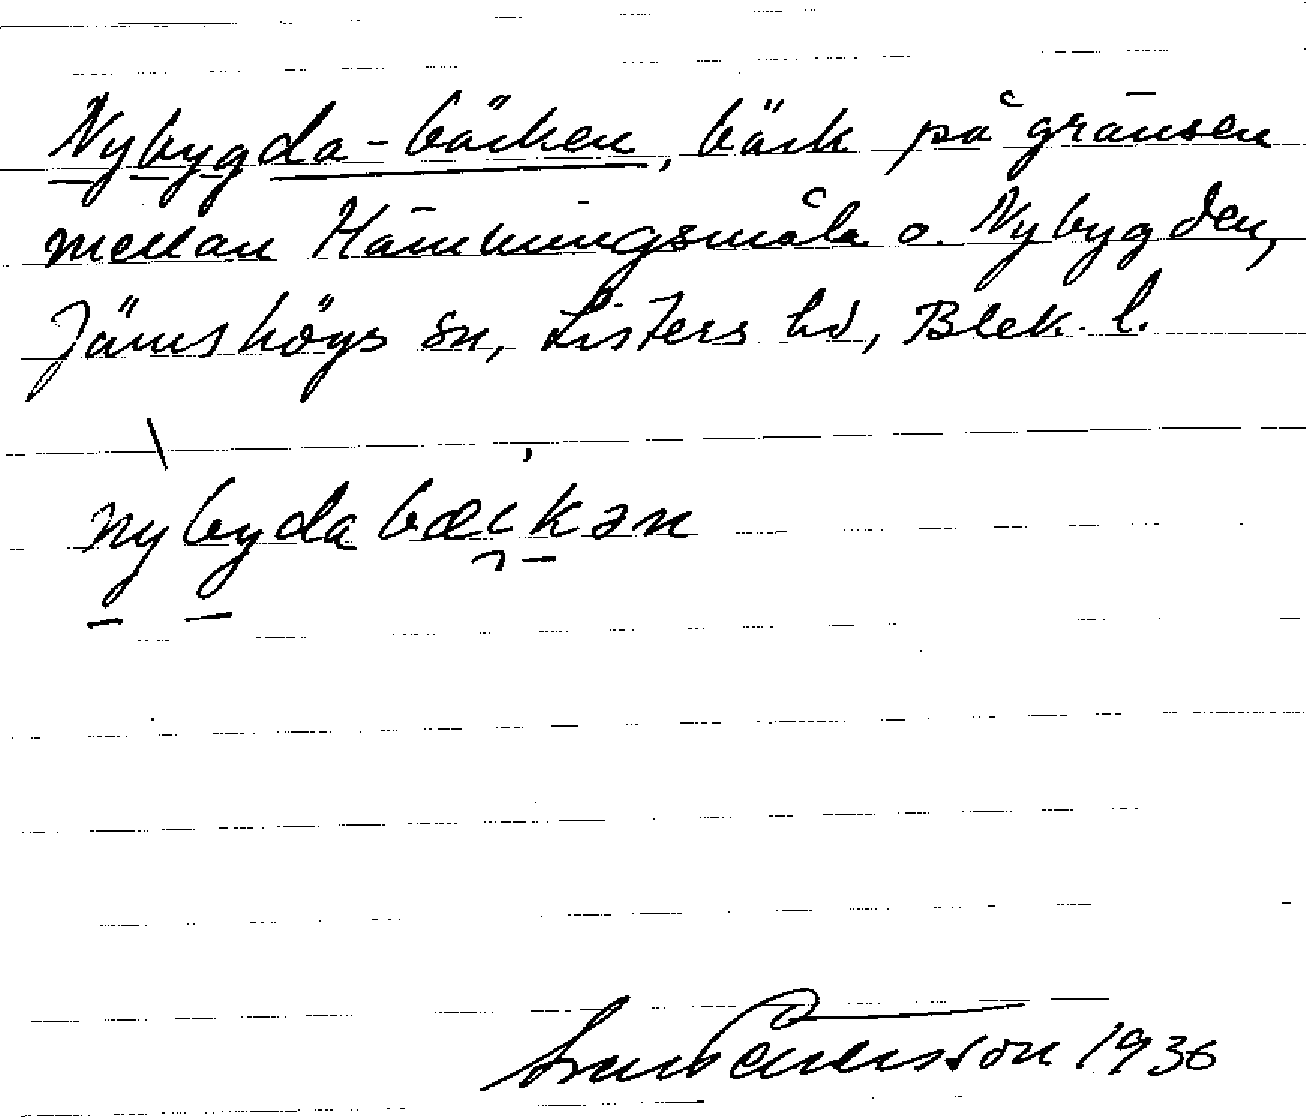 Nybygda-bäcken, bäck på gränsen
mellan Hämmingsmåla o. Nybygden,
Jämshögs sn, Listers hd, Blek. l.
nybydabæickən
1936